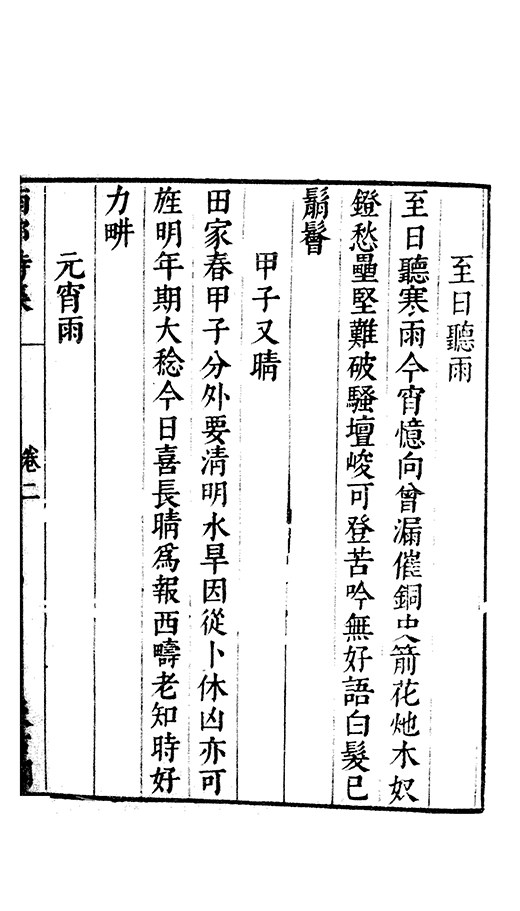 至日聽雨
至日聽寒雨今宵憶向曾漏催銅史箭花灺木奴
鐙愁壘堅難破騷壇峻可登苦吟無好語白髮已
鬅鬙
甲子又晴
田家春甲子分外要清明水旱因從卜休凶亦可
旌明年期大稔今日喜長晴為報西疇老知時好
力畊
元宵雨
卷二